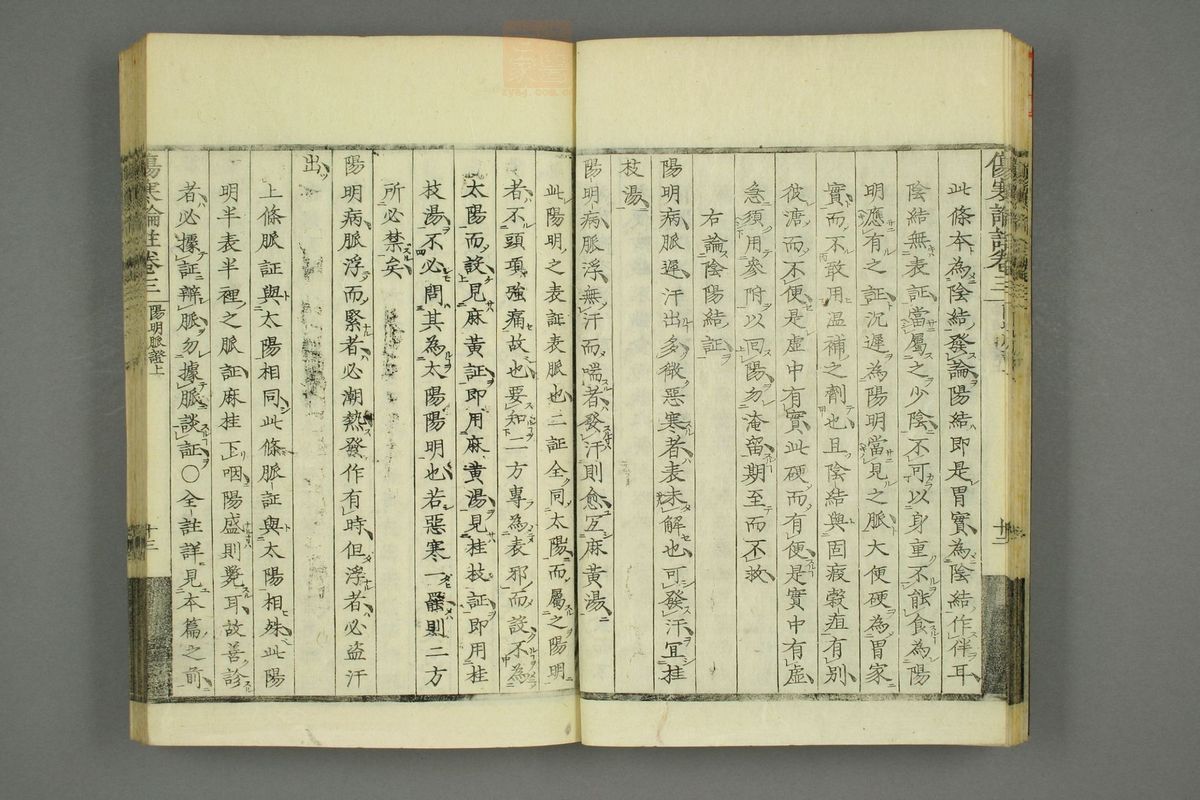 傷寒論註卷三
此條本為陰結發論陽結即是胃實為陰結作伴耳
陰結無表証當屬之少陰不可以身重不能食為陽
明應有之証沉遲為陽明當見之脈大便硬為胃家
實而不敢用温補之劑也且陰結與固瘕穀疸有別
彼溏而不便是虛中有實此硬而有便是實中有虛
急須用參附以回陽勿淹留期至而不救
右論陰陽結証
陽明病脈遲汗出多微惡寒者表未解也可發汗宜桂
枝湯
陽明病脈浮無汗而喘者發汗則愈宜麻黄湯
此陽明之表証表脈也二証全同太陽而屬之陽明
者不頭項強痛故也要知二方專為表邪而設不為
太陽而設見麻黄証即用麻黄湯見桂枝証即用桂
枝湯不必問其為太陽陽明也若惡寒一罷則二方
所必禁矣
陽明病脈浮而緊者必潮熱發作有時但浮者必盗汗
出
上條脈証與太陽相同此條脈証與太陽相殊此陽
明半表半裡之脈証麻桂下咽陽盛則斃耳故善診
者必據証辨脈勿據脈談証○全註詳見本篇之前
傷寒論註卷三 陽明脈證上
十三